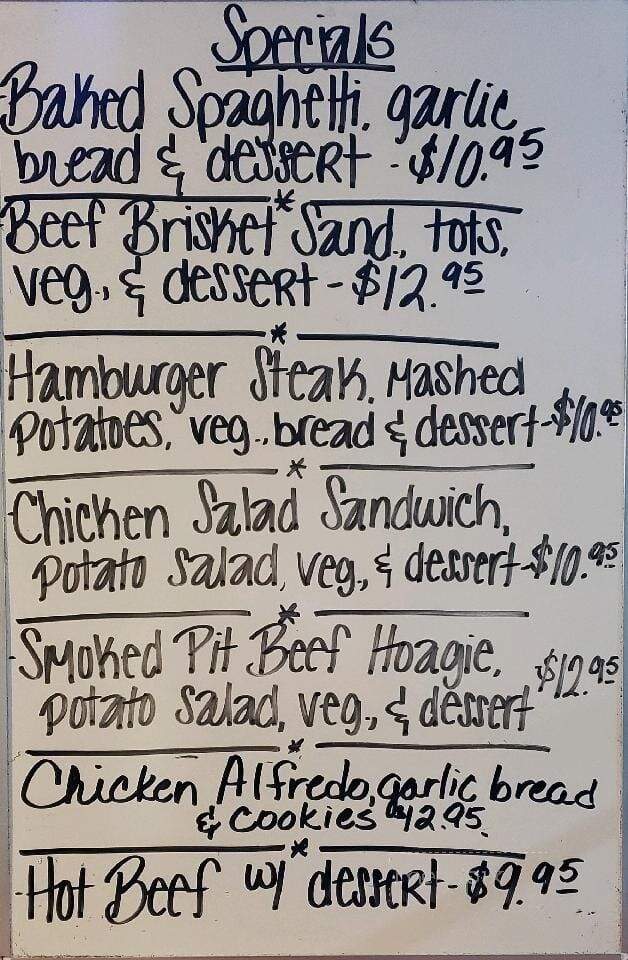 Specials
Baked Spaghetti, garlic
bread & dessert - $10.95
*
Beef Brisket Sand., tots,
veg., & dessert - $12.95
*
Hamburger Steak, Mashed
Potatoes, veg., bread & dessert - $10.95
*
Chicken Salad Sandwich,
potato salad, veg., & dessert - $10.95
*
Smoked Pit Beef Hoagie, $12.95
potato salad, veg., & dessert
*
Chicken Alfredo, garlic bread
& cookies $12.95
*
Hot Beef w/ dessert - $9.95